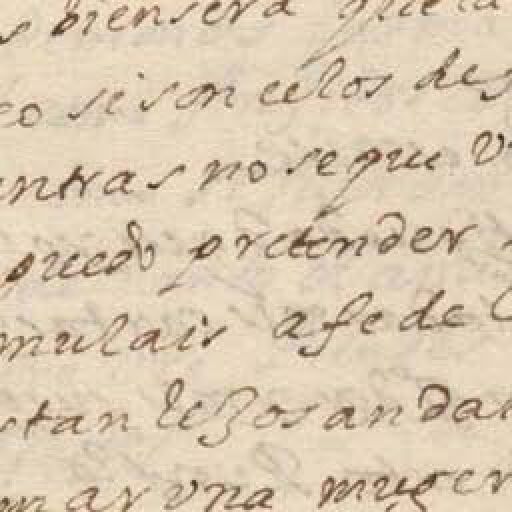 s bien sera que la
co si son celos des
ntras no se que v
puedo pretender
mulais a fe de
stan lezos andan
mar vna muger